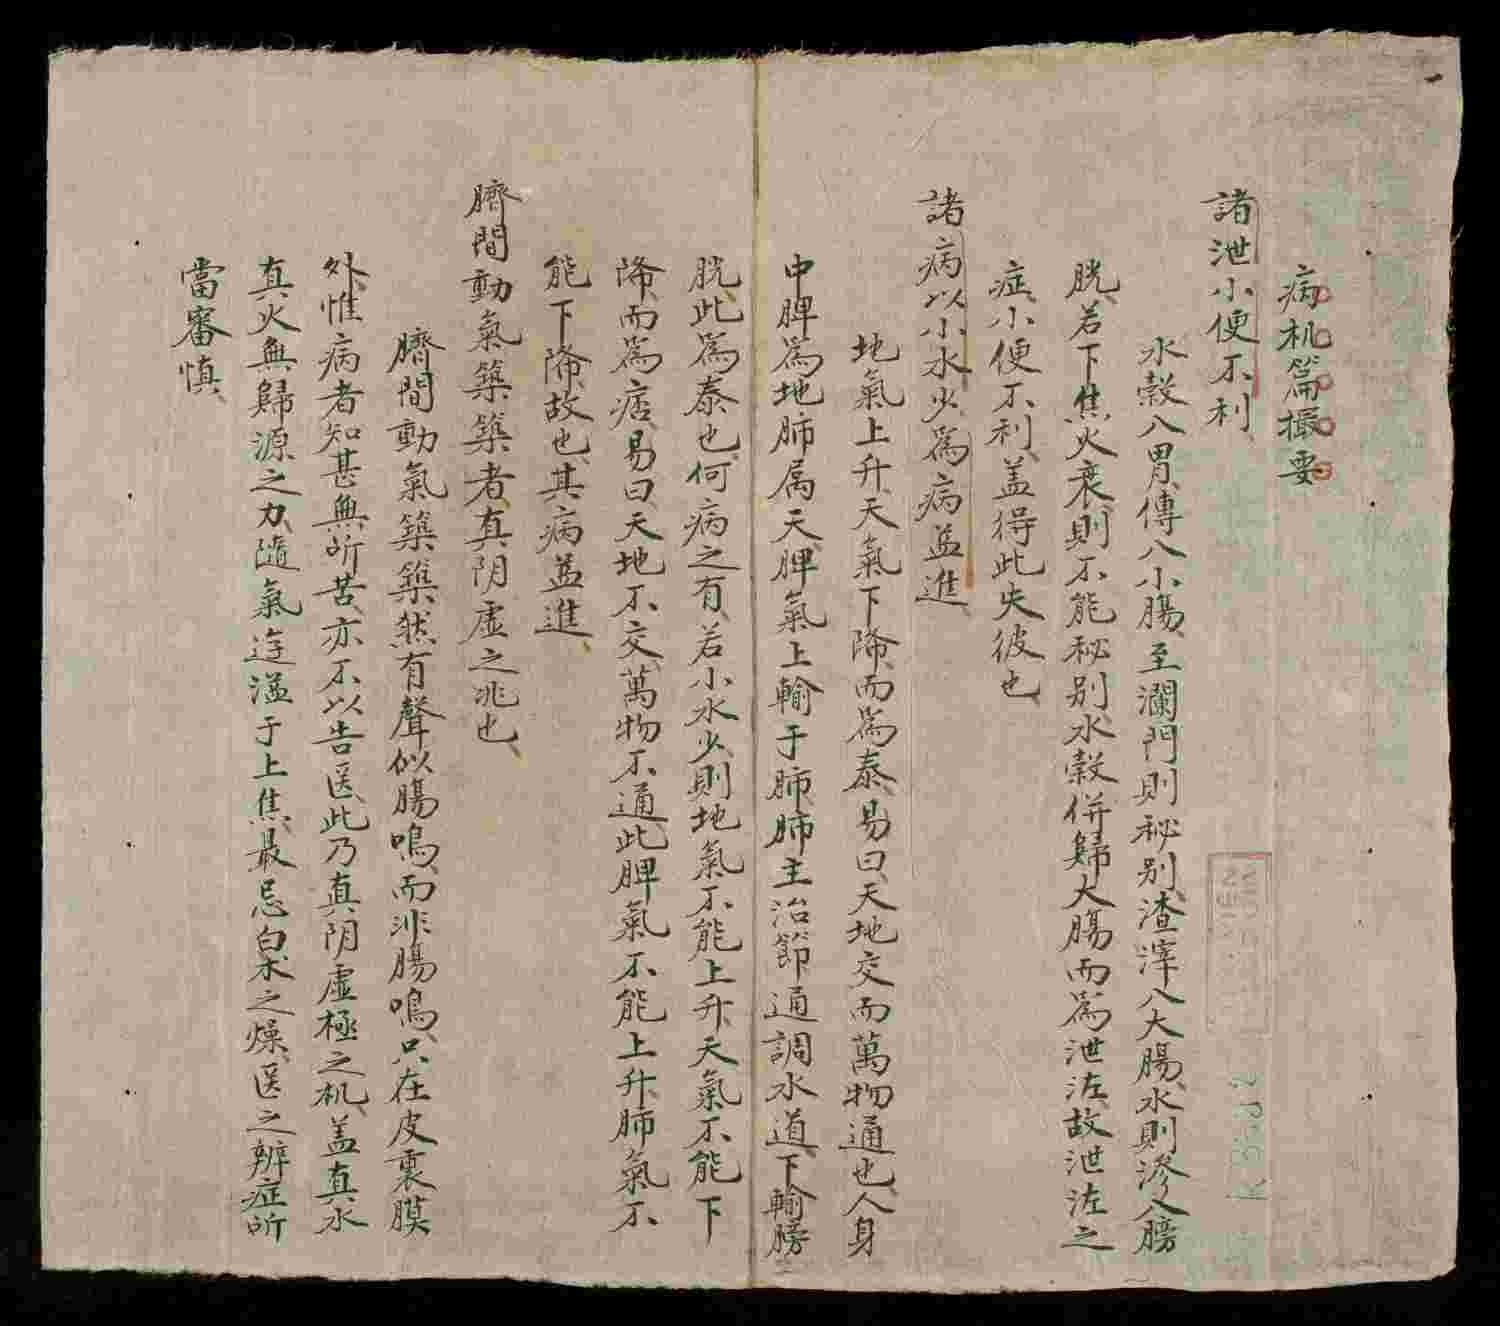 病机篇撮要
諸泄小便不利
水穀入胃傳入小腸至瀾門則秘别渣滓入大腸水則滲入膀
胱若下焦火衰則不能秘别水穀併歸大腸而爲泄泻故泄泻之
症小便不利盖得此失彼也
諸病以小水少爲病益進
地氣上升天氣下降而爲泰易曰天地交而萬物通也人身
中脾爲地肺属天脾氣上輸于肺肺主治節通調水道下輸膀
胱此爲泰也何病之有若小水少則地氣不能上升天氣不能下
降而爲痞易曰天地不交萬物不通此脾氣不能上升肺氣不
能下降故也其病益進
臍間動氣築築者真阴虚之兆也
臍間動氣築築然有聲似腸鳴而非腸鳴只在皮裏膜
外惟病者知甚無所苦亦不以告医此乃真阴虚極之机盖真水
真火無歸源之力随氣逆溢于上焦最忌白朮之燥医之辨症所
當審慎